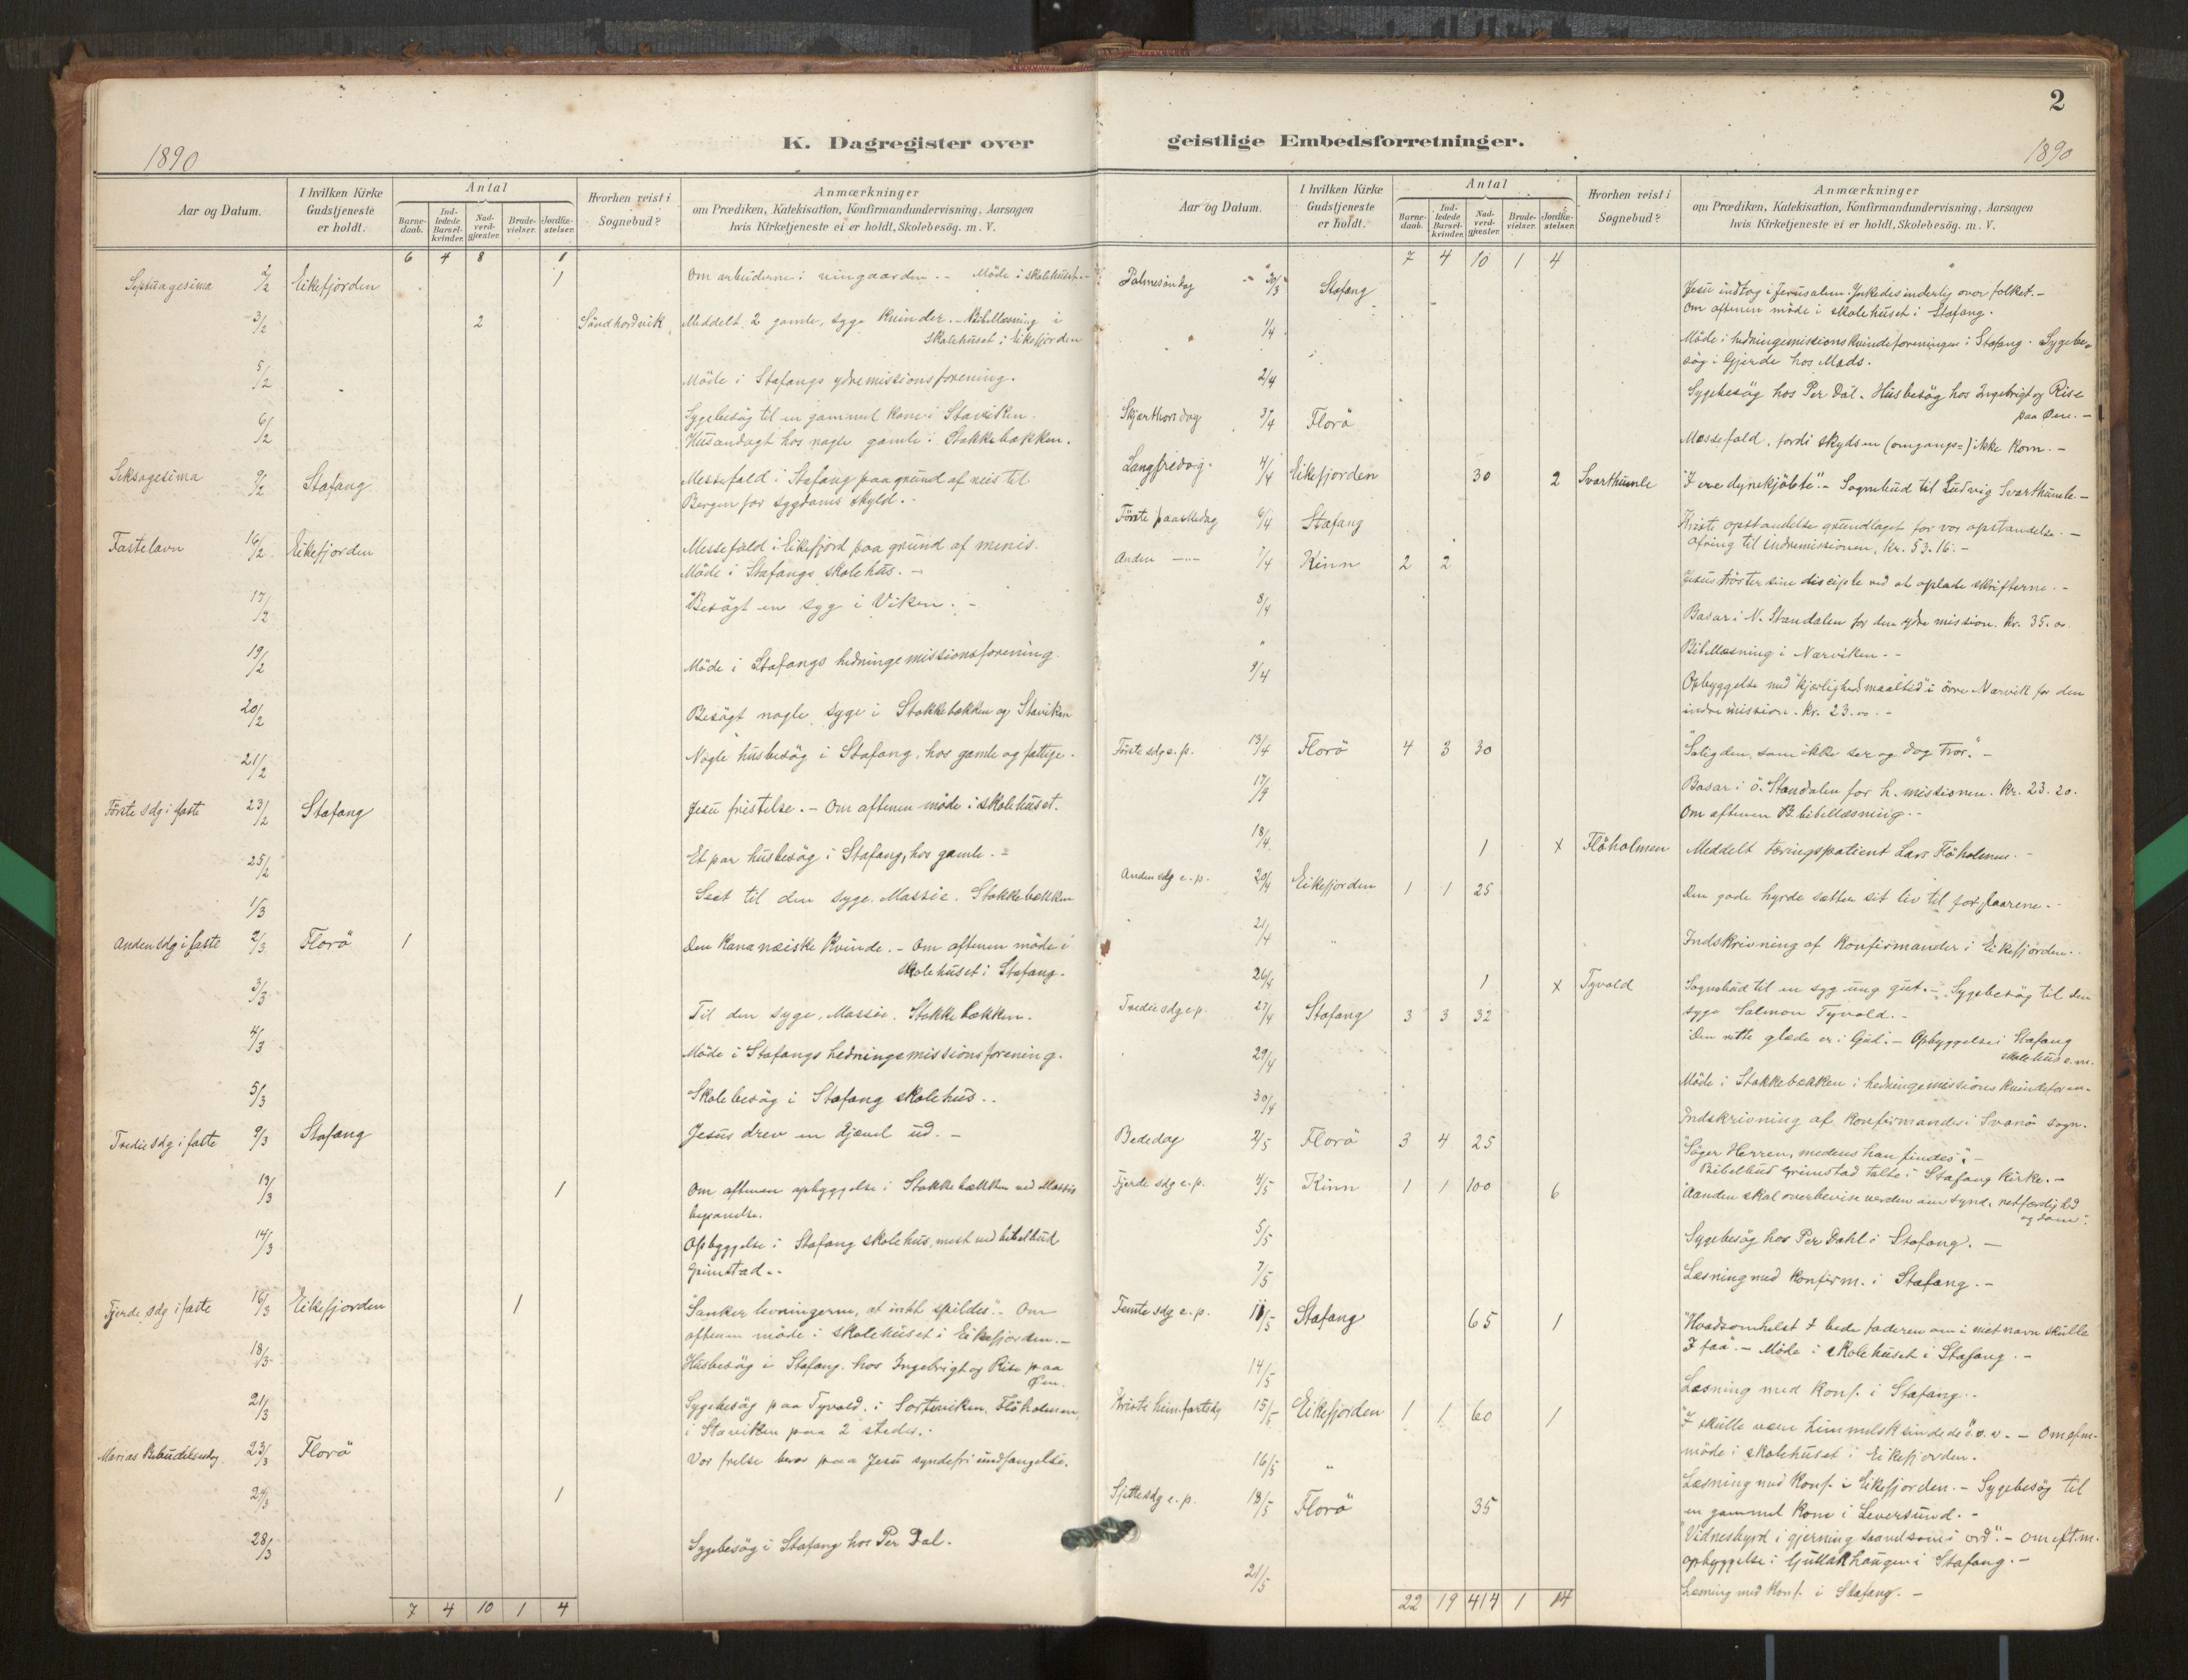 2
K. Dagregister over
1890
Aar og Datum.
I hvilken Kirke Gudstjeneste er holdt.
Antal
Barnedaab.
Indledede Barselkvinder.
Nadverdgjæster.
Brudevielser.
Jordfæstelser.
Hvorhen reist i Sognebud?
Anmærkninger
om Prædiken, Katekisation, Konfirmandundervisning, Aarsagen
hvis Kirketjeneste ei er holdt, Skolebesög. m. V.
6 4 8 1
Septuagesima 2/2 Eikefjorden 1 Om arbeiderne i vingaarden. - Möde i skolehuset. -
3/2 2 Söndhordvik Meddelt 2 gamle, syge kvinder. - Bibellæsning i
skolehuset i Eikefjorden
5/2 Möde i Stafangs ydremissionsforening.
6/2 Sygebesög til en gammel kone i Staviken.
Husandagt hos nogle gamle i Stokkebækken.
Seksagesima 9/2 Stafang Messefald i Stafang paa grund af reis til
Bergen for sygdoms skyld. -
Fastelavn 16/2 Eikefjorden Messefald i Eikefjord paa grund af menis.
Möde i Stafangs skolehus. -
17/2 Besögt en syg i Viken. -
19/2 Möde i Stafangs hedningemissionsforening.
20/2 Besögt nogle syge i Stokkebækken og Staviken
21/2 Nogle husbesög i Stafang, hos gamle og fattige.
Förste sdg i faste 23/2 Stafang Jesu fristelse. - Om aftenen möde i skolehuset.
25/2 Et par husbesög i Stafang, hos gamle. -
1/3 Seet til den syge. Massie. Stokkebækken
Anden sdg i faste 2/3 Florö 1 Den kananæiske kvinde. - Om aftenen möde i
skolehuset i Stafang.
3/3 Til den syge, Massie. Stokkebækken.
4/3 Möde i Stafangs hedningemissionsforening.
5/3 Skolebesög i Stafang skolehus. -
Tredie sdg i faste 9/3 Stafang Jesus drev en djævel ud. -
13/3 1 Om aftenen opbyggelse i Stokkebækken ved Massis
begravelse.
14/3 Opbyggelse i Stafang skolehus, mest ved bibelbud
Grimstad. -
Fjerde sdg i faste 16/3 Eikefjorden 1 "Sanker levningerne, at intet spildes". - Om
aftenen möde i skolehuset i Eikefjorden. -
18/3 Husbesög i Stafang. hos Ingebrigt og Rise paa
Øen.
21/3 Sygebesög paa Tyvold, i Sorteviken, Flöholmen,
i Staviken paa 2 steder. -
Marias Bebudelsesdag 23/3 Florö Vor frelse beror paa Jesu syndefri undfangelse.
24/3 1
28/3 Sygebesög i Stafang hos Per Dal.
7 4 10 1 4
geistlige Embedsforretninger.
1890
Aar og Datum.
I hvilken Kirke Gudstjeneste er holdt.
Antal
Barnedaab.
Indledede Barselkvinder.
Nadverdgjæster.
Brudevielser.
Jordfæstelser.
Hvorhen reist i Sognebud?
Anmærkninger
om Prædiken, Katekisation, Konfirmandundervisning, Aarsagen
hvis Kirketjeneste ei er holdt, Skolebesög. m. V.
7 4 10 1 4
Palmesöndag 30/3 Stafang Jesu indtog i Jerusalem. Ynkedes inderlig over folket. -
Om aftenen möde i skolehuset i Stafang.
1/4 Möde i hedningemissionskvindeforeningen i Stafang. Sygebe-
sög i Gjerde hos Mads.
2/4 Sygebesög hos Per Dal. Husbesög hos Ingebrigt og Rise
paa Øen. -
Skjærthorsdag 3/4 Florö Messefald, fordi skydsen (omgangs=) ikke kom. -
Langfredag. 4/4 Eikefjorden 30 2 Svarthumle "I ere dyrekjöbte". - Sognebud til Ludvig Svarthumle. -
Förste paaskedag 6/4 Stafang Kristi opstandelse grundlaget for vor opstandelse. -
Ofring til indremissionen, kr. 53.16. -
Anden -"- 7/4 Kinn 2 2 Jesus tröster sine disciple ved at oplade skrifterne. -
8/4 Basar i N. Standalen for den ydre mission. kr. 35.00.
" Bibellæsning i Narviken. -
9/4 Opbyggelse med "kjærlighedsmaaltid" i övre Narvik for den
indre mission. kr. 23.00. -
Förste sdg e. p. 13/4 Florö 4 3 30 "Salig den, som ikke ser og dog tror." -
17/4 Basar i ö. Standalen for h. missionen. kr. 23.20.
Om aftenen bibellæsning. -
18/4 1 x Flöholmen Meddelt tæringspatient Lars Flöholmen. -
Anden sdg e. p. 20/4 Eikefjorden 1 1 25 Den gode hyrde sætter sit liv til for faarene. -
21/4 " Indskrivning af konfirmander i Eikefjorden. -
26/4 1 x Tyvold Sognebud til en syg ung gut. - Sygebesög til den
syge Salmon Tyvold. -
Tredie sdg e. p. 27/4 Stafang 3 3 32 Den rette glæde er i Gud. - Opbyggelse i Stafang
skolehus e.m.
29/4 Möde i Stokkebækken i hedningemissions kvindeforen.
30/4 Indskrivning af konfirmander i Svanö sogn.
Bededag 2/5 Florö 3 4 25 "Söger Herren, medens han findes". -
Bibelbud Grimstad talte i Stafang kirke. -
Fjerde sdg e. p. 4/5 Kinn 1 1 100 6 "Aanden skal overbevise verden om synd, retfærdighed
og dom".
5/5 Sygebesög hos Per Dahl i Stafang. -
7/5 Læsning med konfirm. i Stafang. -
Femte sdg e. p. 11/5 Stafang 65 1 "Hvadsomhelst I bede faderen om i mit navn skulle
I faa". - Möde i skolehuset i Stafang. -
14/5 Læsning med konf. i Stafang. -
Kristi himfartsdg 15/5 Eikefjorden 1 1 60 1 "I skulle være himmelsksindede" o. s. v. - Om efm.
möde i skolehuset i Eikefjorden.
16/5 " Læsning med konf. i Eikefjorden. - Sygebesög til
en gammel kone i Leversund. -
Sjette sdg e. p. 18/5 Florö 35 "Vidnesbyrd i gjerning saavelsom i ord". - Om eft.m.
opbyggelse i Gullakhaugen i Stafang. -
21/5 Læsning med konf. i Stafang. -
22 19 414 1 14